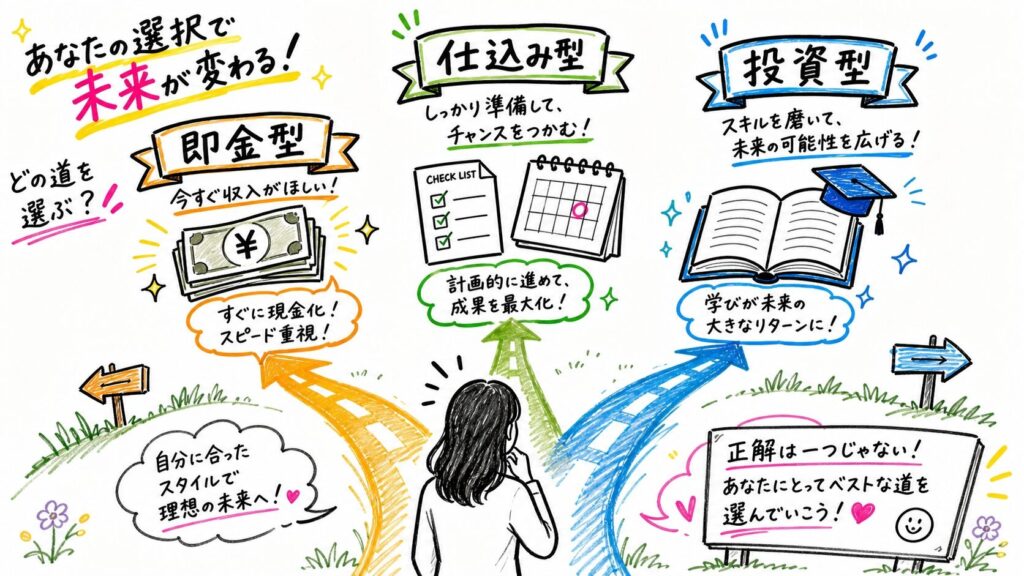 あなたの選択で
未来が変わる！
どの道を
選ぶ？
即金型
今すぐ収入がほしい！
¥
すぐに現金化！
スピード重視！
仕込み型
しっかり準備して、
チャンスをつかむ！
CHECK LIST
計画的に進めて、
成果を最大化！
投資型
スキルを磨いて、
未来の可能性を広げる！
学びが未来の
大きなリターンに！
自分に合った
スタイルで
理想の未来へ！
正解は一つじゃない！
あなたにとってベストな道を
選んでいこう！